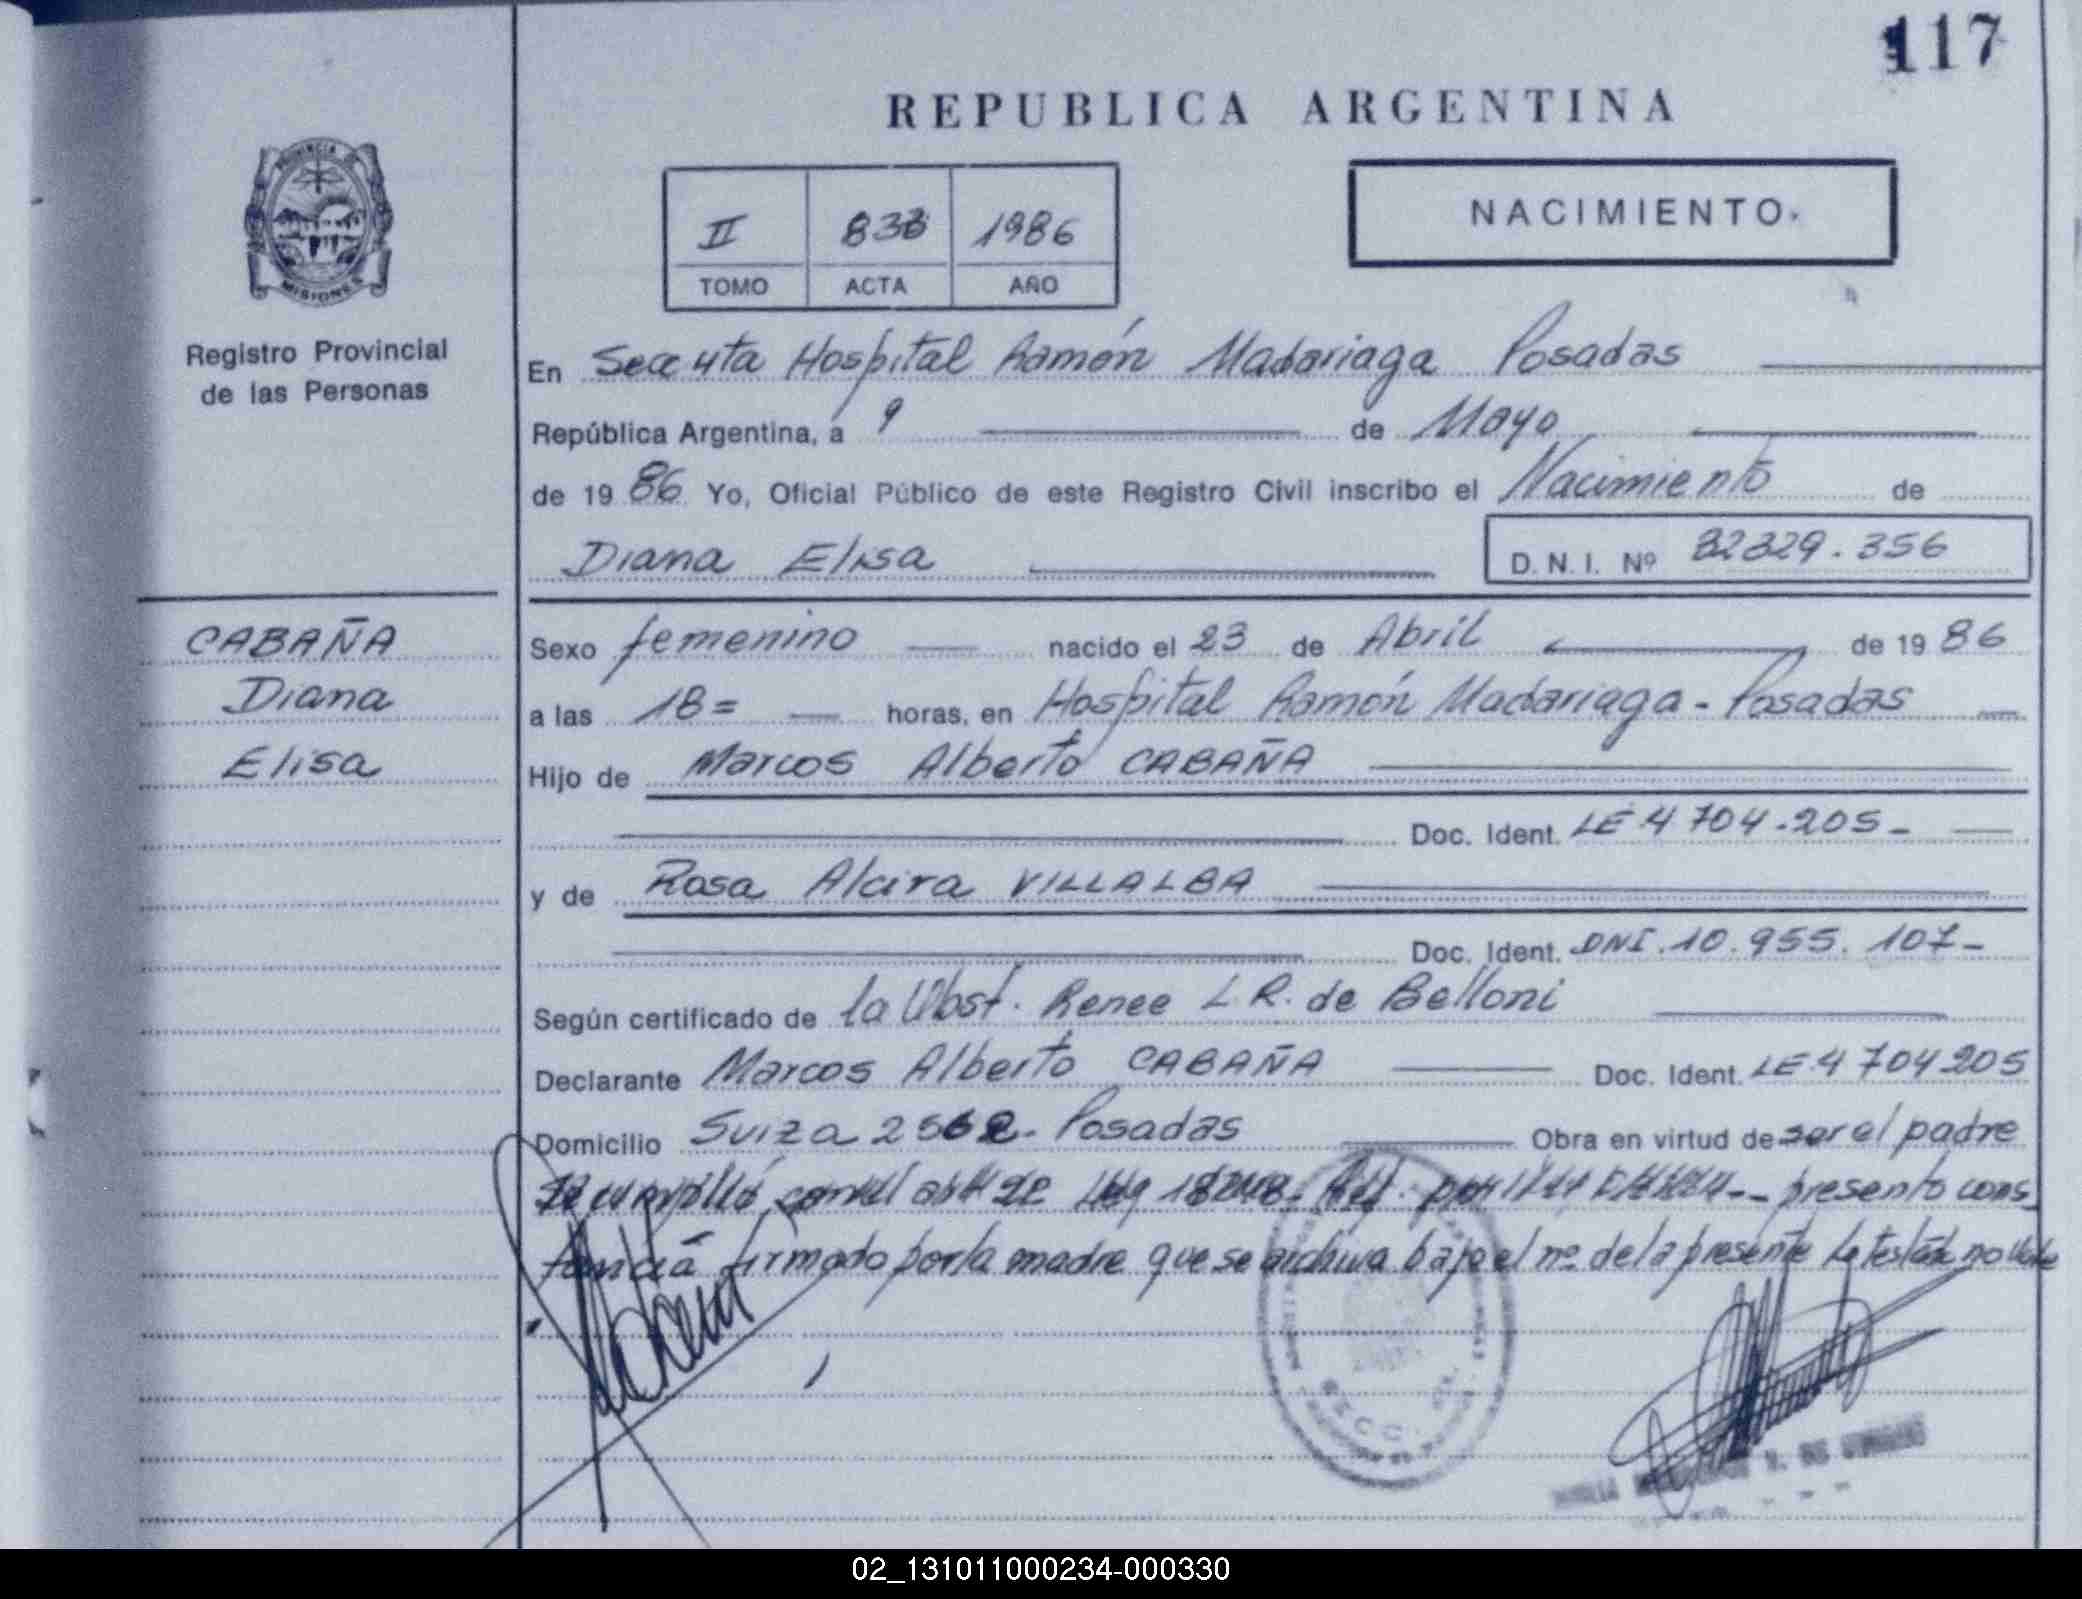 117
REPUBLICA ARGENTINA
PROVINCIA DE
MISIONES
Registro Provincial
de las Personas
II 833 1986
TOMO ACTA AÑO
NACIMIENTO.
En Secc 4ta Hospital Ramón Madariaga Posadas
República Argentina, a 9 de Mayo
de 1986 Yo, Oficial Público de este Registro Civil inscribo el Nacimiento de
Diana Elisa D. N. I. Nº 32329.356
CABAÑA
Diana
Elisa
Sexo femenino nacido el 23 de Abril de 1986
a las 18= horas, en Hospital Ramón Madariaga - Posadas
Hijo de Marcos Alberto CABAÑA
Doc. Ident. LE 4 704.205-
y de Rosa Alcira VILLALBA
Doc. Ident. DNI.10.955.107-
Según certificado de la Obst. Renee L.R. de Belloni
Declarante Marcos Alberto CABAÑA Doc. Ident. LE 4 704205
Domicilio Suiza 2562. Posadas Obra en virtud de ser el padre
presento cons
tancia firmado por la madre que se archiva bajo el nº de la presente Lo testado no vale
02_131011000234-000330